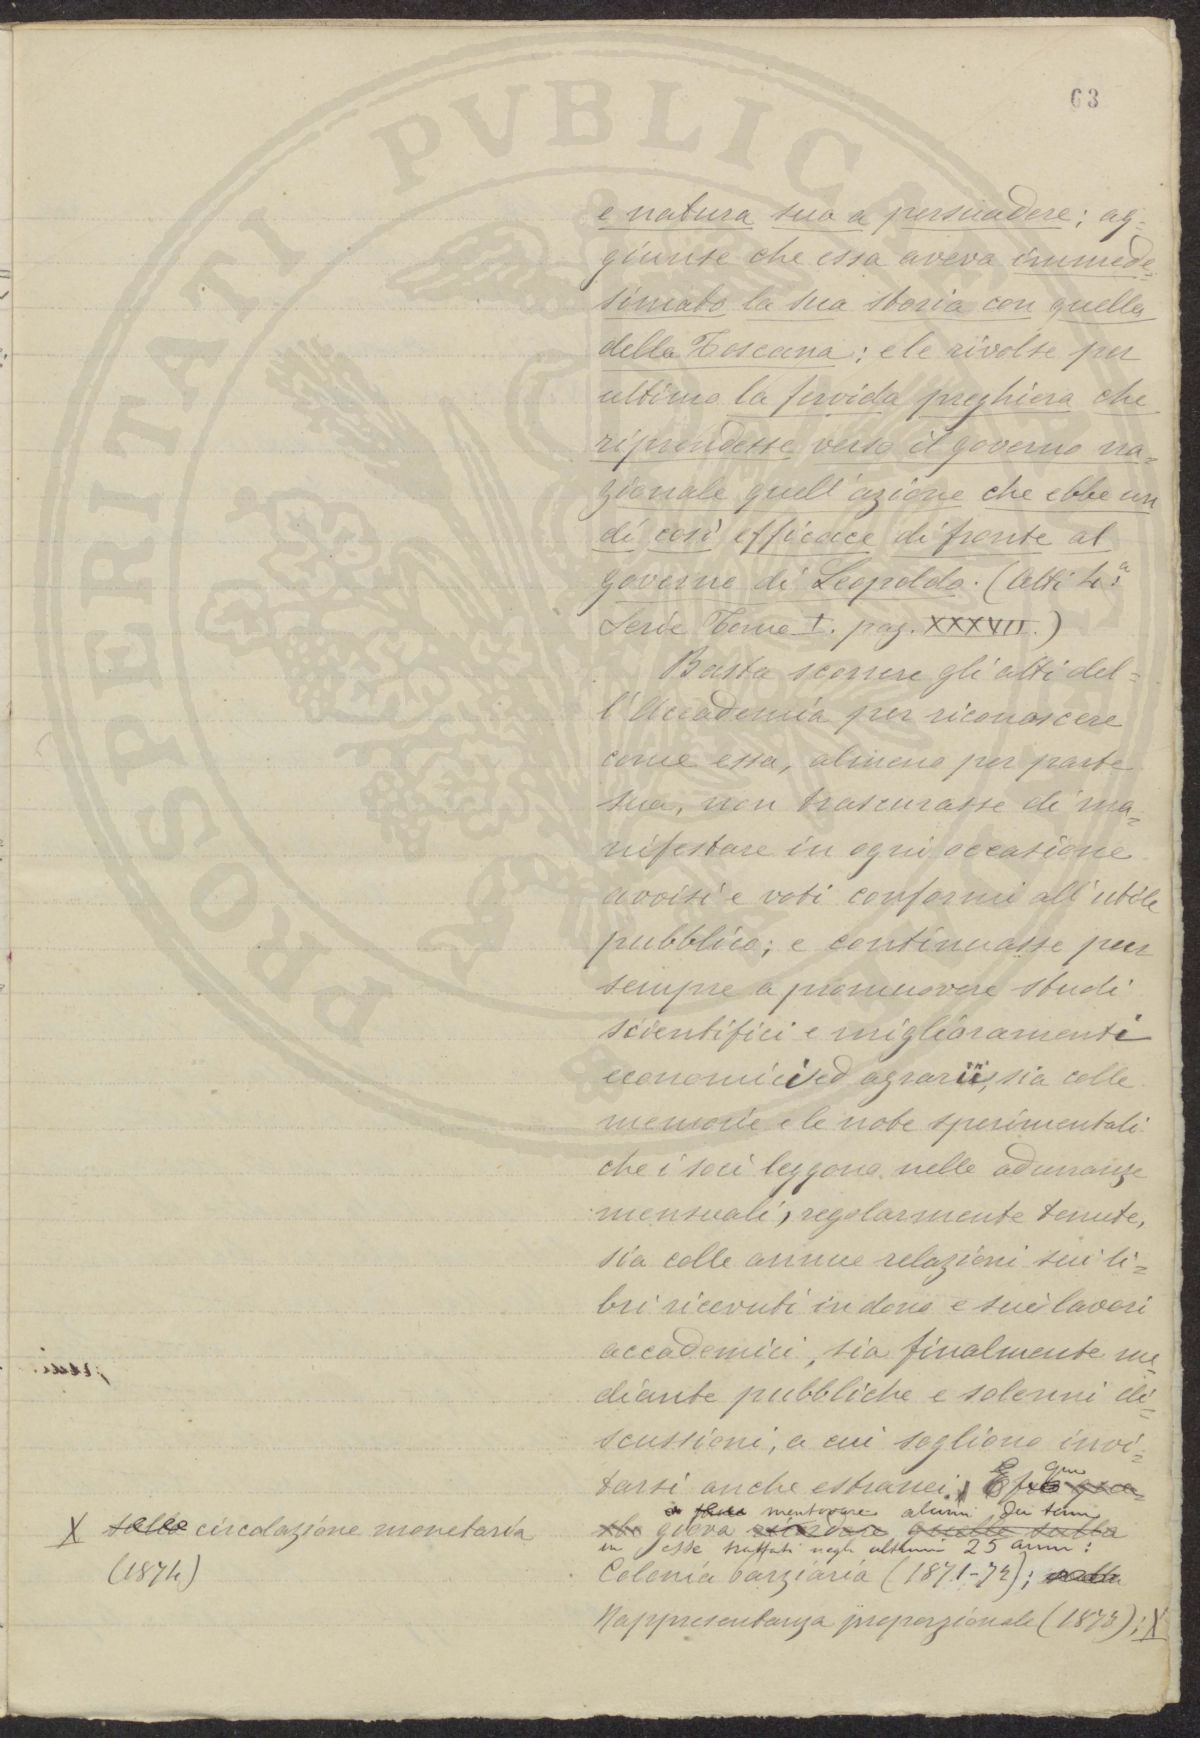 63
e natura sua a persuadere; ag-
giunse che essa aveva immede-
simato la sua storia con quella
della Toscana; e le rivolse per
ultimo la fervida preghiera che
riprendesse verso il governo na=
zionale quell'azione che ebbe un
dì così efficace di fronte al
governo di Leopoldo. (Atti
Serie Tomo I. pag. XXXVII.)
Basta scorrere gli atti del=
l'Accademia per riconoscere
come essa, almeno per parte
sua, non trascurasse di ma=
nifestare in ogni occasione
avvisi e voti conformi all'utile
pubblico; e continuasse pur
sempre a promuovere studi
scientifici e miglioramenti
economici ed agrarii, sia colle
memorie e le note sperimentali
che i soci leggono nelle adunanze
mensuali, regolarmente tenute,
sia colle annue relazioni sui li=
bri ricevuti in dono e sui lavori
accademici, sia finalmente me=
diante pubbliche e solenni di=
scussioni, a cui sogliono invi=
tarsi anche estranei. E qui
giova mentovare alcuni dei temi
in esse trattati negli ultimi 25 anni:
Colonia parziaria (1871-72);
Rappresentanza proporzionale (1873); X
X sulla circolazione monetaria
(1874)
PROSPERITATI PVBLICAE